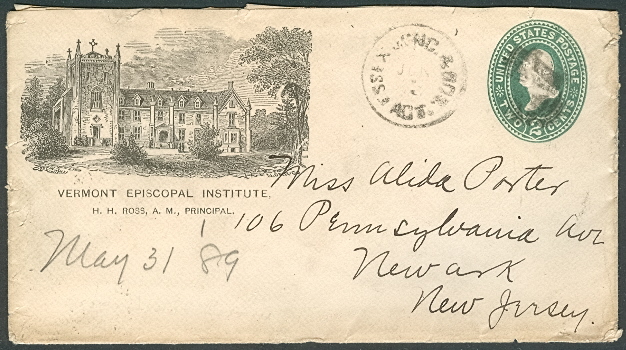 VERMONT EPISCOPAL INSTITUTE.
H. H. ROSS, A. M., PRINCIPAL.
May 31 '89
UNITED STATES POSTAGE
TWO 2 CENTS
Miss Alida Porter
106 Pennsylvania Ave
Newark
New Jersey.